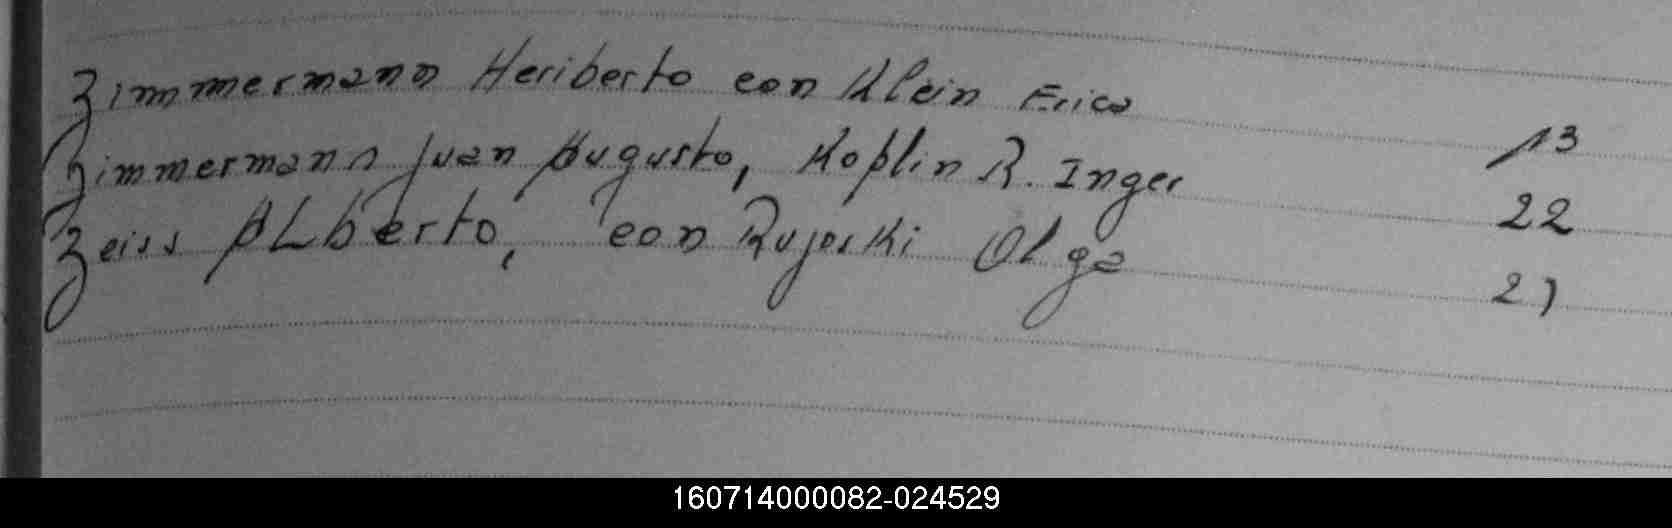 Zimmermann Heriberto con Klein Erica 13
Zimmermann Juan Augusto, Koplin R. Inger 22
Zeiss ALberto, con Olga
160714000082-024529